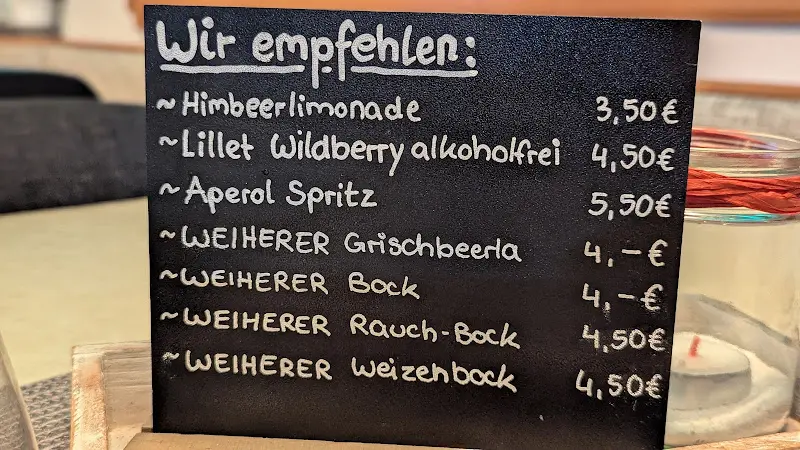 Wir empfehlen:
~Himbeerlimonade 3,50€
~Lillet Wildberry alkoholfrei 4,50€
~Aperol Spritz 5,50€
~WEIHERER Grischbeerla 4,-€
~WEIHERER Bock 4,-€
~WEIHERER Rauch-Bock 4,50€
~WEIHERER Weizenbock 4,50€